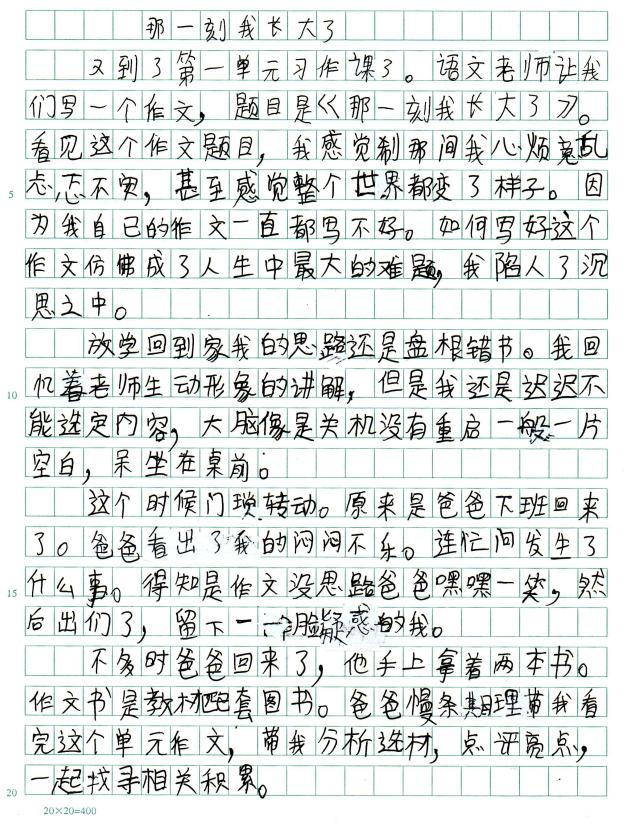 那一刻我长大了
又到了第一单元习作课了。语文老师让我
们写一个作文，题目是《那一刻我长大了》。
看见这个作文题目，我感觉刹那间我心烦意乱
忐忑不安，甚至感觉整个世界都变了样子。因
为我自己的作文一直都写不好。如何写好这个
5
作文仿佛成了人生中最大的难题，我陷人了沉
思之中。
放学回到家我的思路还是盘根错节。我回
忆着老师生动形象的讲解，但是我还是迟迟不
10
能选定内容，大脑像是关机没有重启一般一片
空白，呆坐在桌前。
这个时候门琐转动。原来是爸爸下班回来
了。爸爸看出了我的闷闷不乐。连忙问发生了
什么事。得知是作文没思路爸爸嘿嘿一笑，然
15
后出们了，留下一个脸疑惑的我。
不多时爸爸回来了，他手上拿着两本书。
作文书是教材配套图书。爸爸慢条期理带我看
完这个单元作文，带我分析选材，点评亮点，
一起找寻相关积累。
20
20×20=400